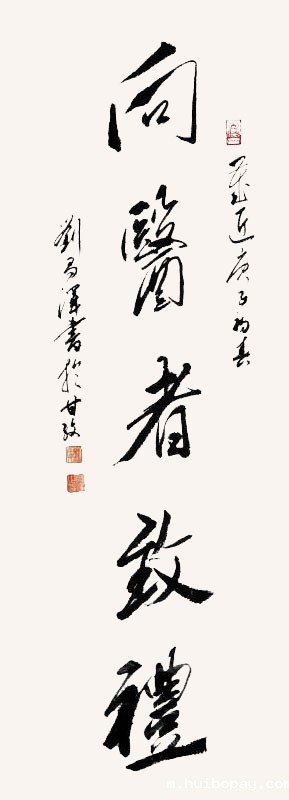 向醫者致禮
庚子初春
劉昌渾書於甘孜
m.huibopay.com